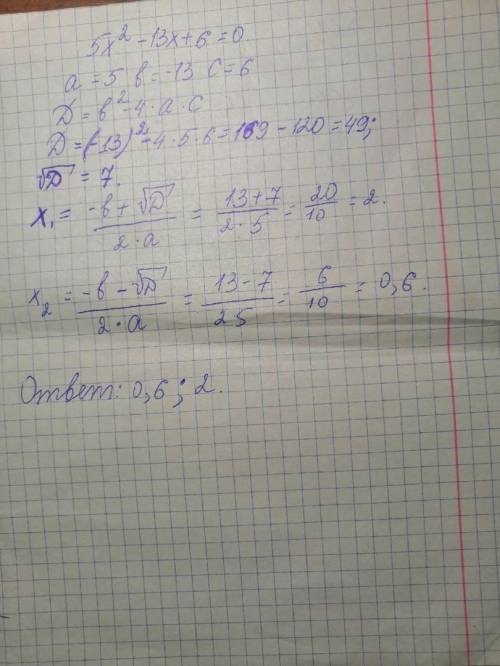 5x² - 13x + 6 = 0
a = 5 в = -13 c = 6
D = в² - 4·a·c
D = (-13)² - 4·5·6 = 169 - 120 = 49;
√D = 7.
x₁ = (-в + √D)/(2·a) = (13+7)/(2·5) = 20/10 = 2.
x₂ = (-в - √D)/(2·a) = (13-7)/(2 5) = 6/10 = 0,6.
Ответ: 0,6; 2.